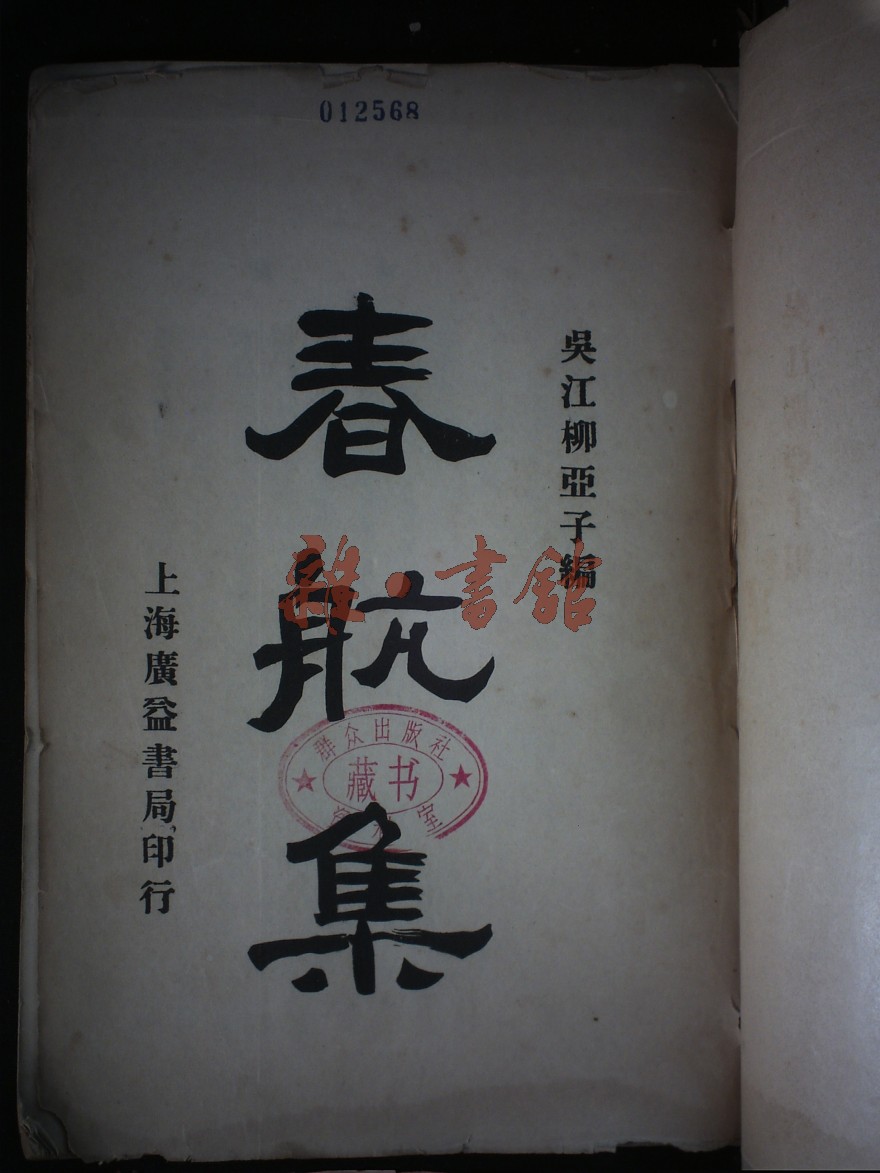 012568
吳江柳亞子編
春航集
上海廣益書局印行
群众出版社
藏书
室
書館